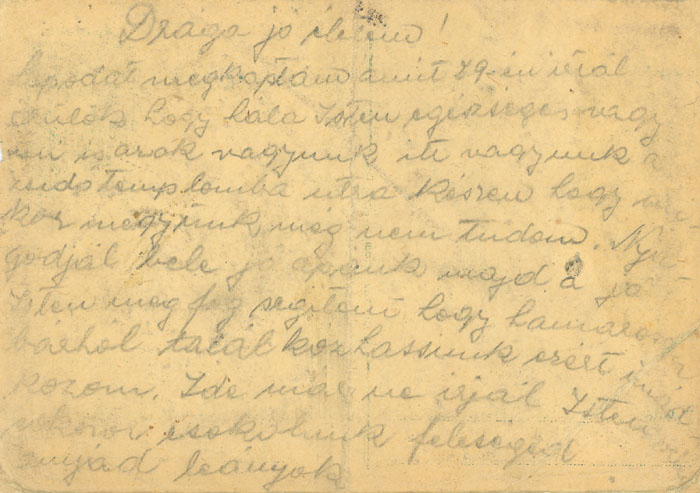 Drága jó életem!
lapodat megkaptam amit 29-én írtál
örülök hogy hála Isten egészséges vagy
mi is azok vagyunk itt vagyunk a
zsidó templomba útra készen hogy mi-
kor megyünk még nem tudom. Nyu-
godjál bele jó apánk majd a jó
Isten meg fog segíteni hogy hamarosan
bárhól találkozhassunk ezért imád
kozom. Ide már ne írjál Isten
sokszor csokolunk feleséged
anyád leányok